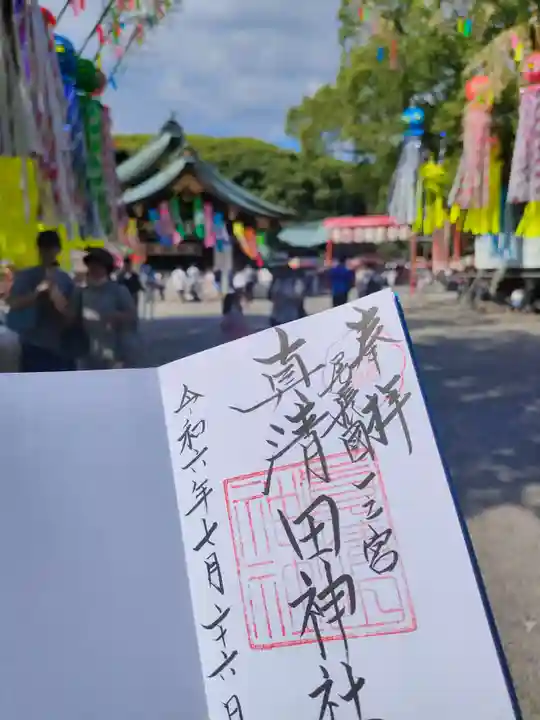 奉拝
尾張國一宮
真清田神社
令和六年七月二十六日